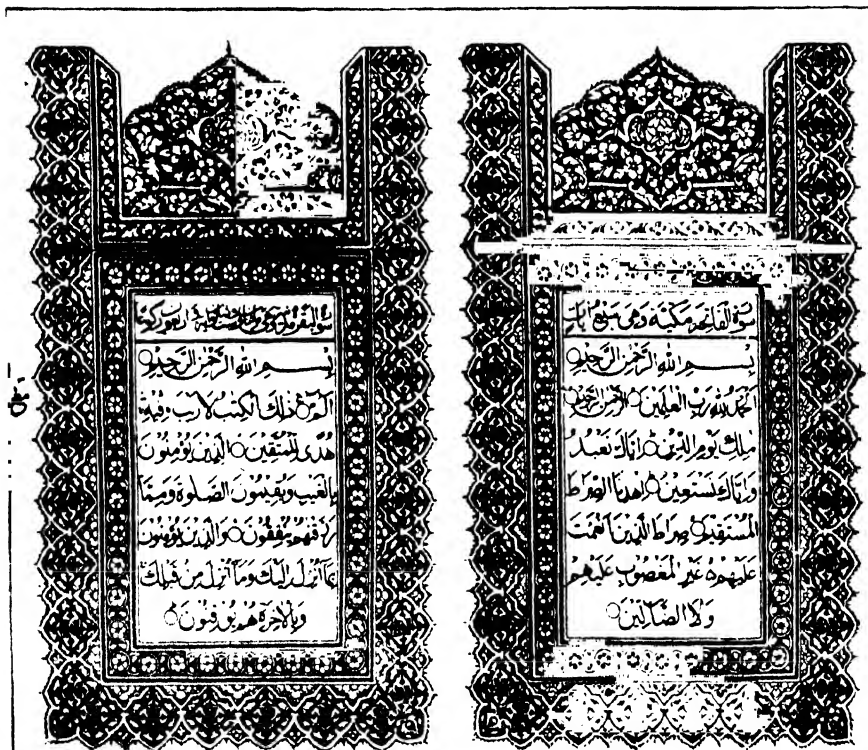 سورة الفاتحة مكية وهي سبع آيات
بِسْمِ اللهِ الرَّحْمٰنِ الرَّحِيْمِ
اَلْحَمْدُ لِلّٰهِ رَبِّ الْعٰلَمِيْنَ الرَّحْمٰنِ الرَّحِيْمِ
مٰلِكِ يَوْمِ الدِّيْنِ اِيَّاكَ نَعْبُدُ
وَاِيَّاكَ نَسْتَعِيْنُ اِهْدِنَا الصِّرَاطَ
الْمُسْتَقِيْمَ صِرَاطَ الَّذِيْنَ اَنْعَمْتَ
عَلَيْهِمْ غَيْرِ الْمَغْضُوْبِ عَلَيْهِمْ
وَلَا الضَّآلِّيْنَ
سورة البقرة
بِسْمِ اللهِ الرَّحْمٰنِ الرَّحِيْمِ
الٓمّٓ ذٰلِكَ الْكِتٰبُ لَا رَيْبَ فِيْهِ
هُدًى لِّلْمُتَّقِيْنَ الَّذِيْنَ يُؤْمِنُوْنَ
بِالْغَيْبِ وَيُقِيْمُوْنَ الصَّلٰوةَ وَمِمَّا
رَزَقْنٰهُمْ يُنْفِقُوْنَ وَالَّذِيْنَ يُؤْمِنُوْنَ
بِمَآ اُنْزِلَ اِلَيْكَ وَمَآ اُنْزِلَ مِنْ قَبْلِكَ
وَبِالْاٰخِرَةِ هُمْ يُوْقِنُوْنَ